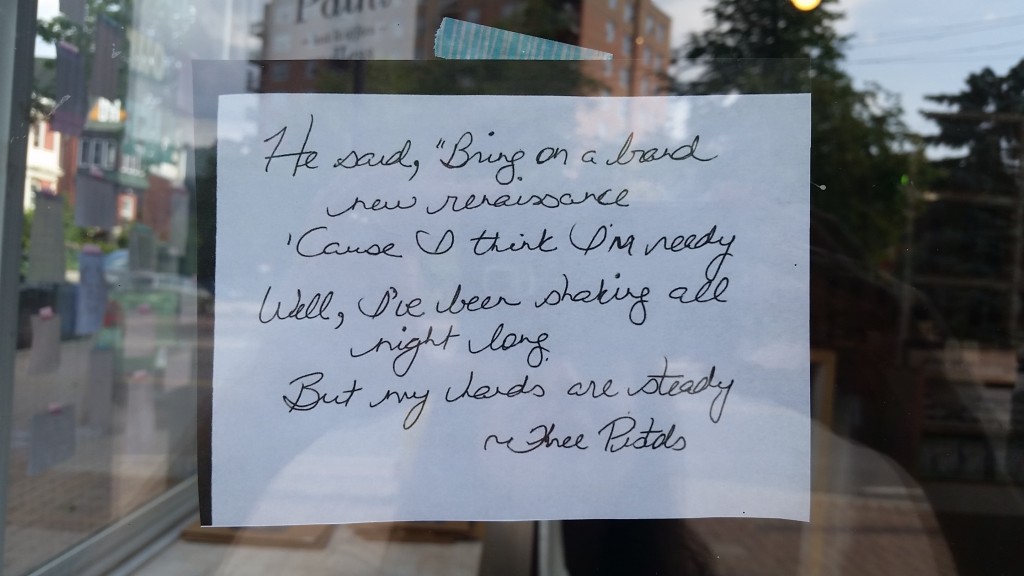 Paint
He said, "Bring on a brand
new renaissance
'Cause I think I'm ready
Well, I've been shaking all
night long
But my hands are steady
~Three Pistols